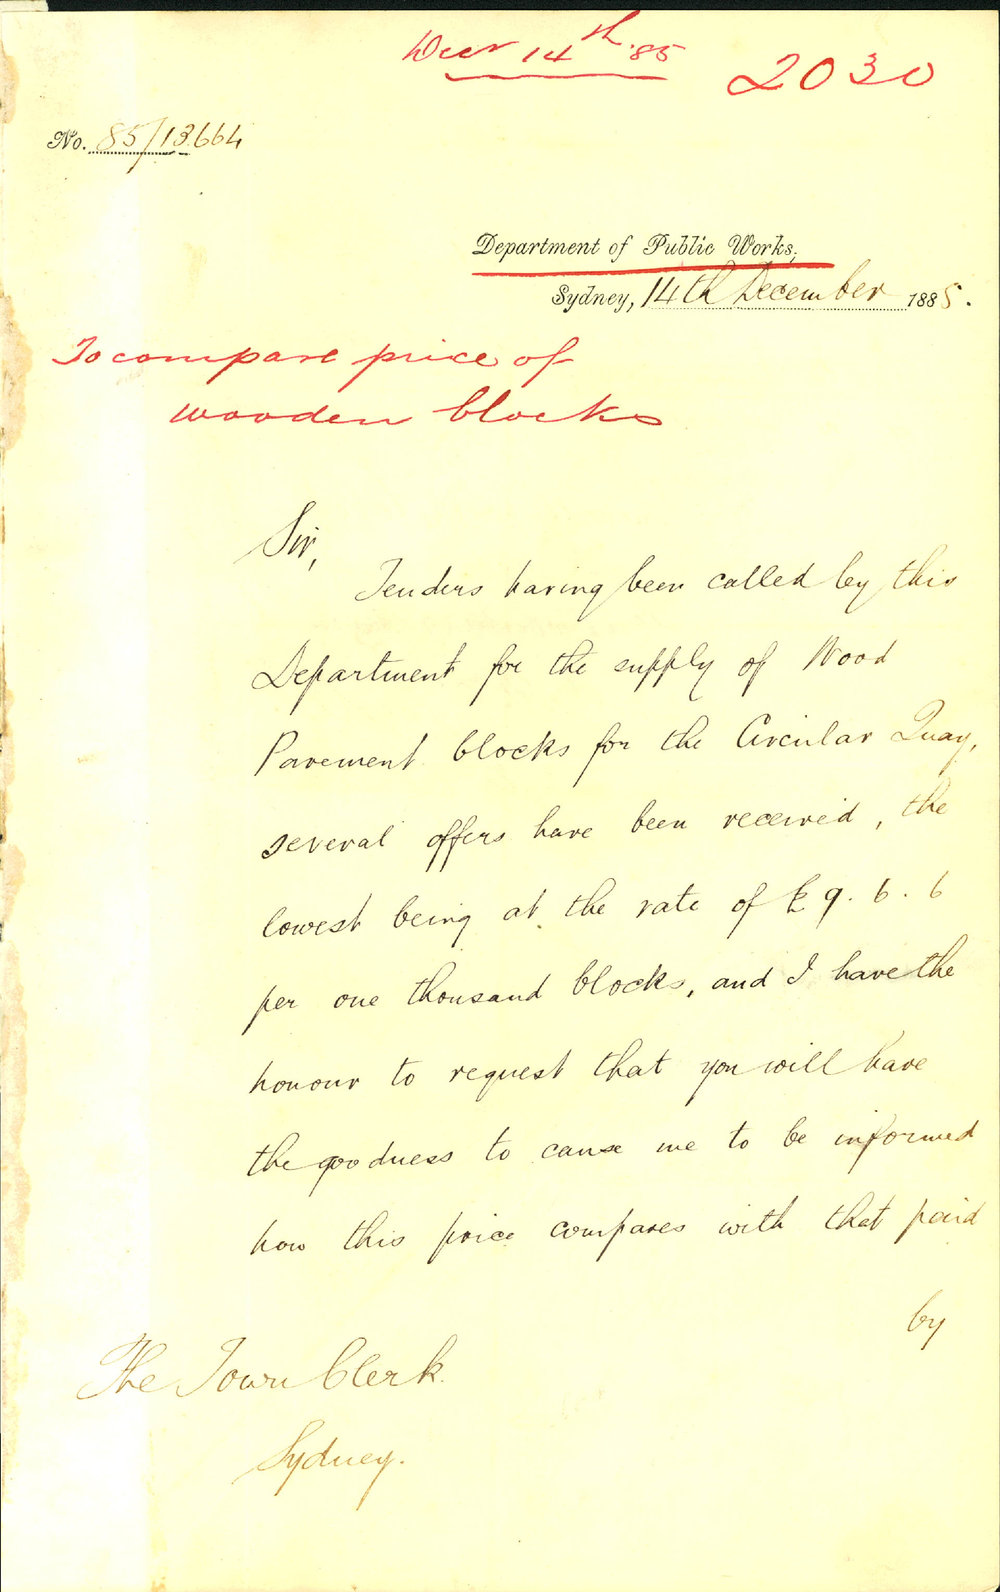 Decr 14th 85
2030
No. 85/13664
Department of Public Works,
Sydney, 14th December 1885.
To compare price of
wooden blocks
Sir,
Tenders having been called by this
Department for the supply of Wood
Pavement blocks for the Circular Quay,
several offers have been received, the
lowest being at the rate of £9.6.6
per one thousand blocks, and I have the
honour to request that you will have
the goodness to cause me to be informed
how this price compares with that paid
by
The Town Clerk.
Sydney.